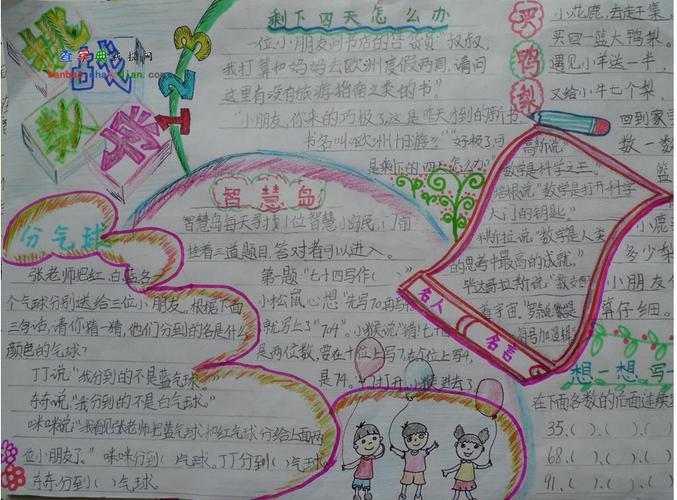 挑战
数学
123
查字典数据网
剩下四天怎么办
一位小朋友问书店的售货员"叔叔,
我打算和妈妈去欧洲度假两周,请问
这里有没有旅游指南之类的书"
"小朋友,你来的巧极了,这是昨天才到的新书
书名叫《欧洲十日游》""好极了,可
是剩下的四天怎么办?"
买鸭梨
小花鹿,去赶集,
买回一篮大鸭梨。
遇见小羊送一半,
又给小牛七个梨
回到家
数一数
篮
小鹿
多少梨
小朋友
算仔细。
智慧岛
智慧岛每天寻找1位智慧小岛民,门前
挂着三道题目,答对者可以进入。
第一题"七十四写作( )
小松鼠心想"先写70再写
就写上了"704"。小猴说"错!七十
是两位数,要在十位上写7,在个位上写4,
是74。"门打开,小猴进去了
分气球
张老师把红、白、蓝各一
个气球分别送给三位小朋友。根据下面
三句话,请你猜一猜,他们分到的各是什么
颜色的气球?
丁丁说"我分到的不是蓝气球。"
东东说"我分到的不是白气球。"
咪咪说"我看见张老师把蓝气球和红气球分给上面两
位小朋友了。"咪咪分到( )气球。丁丁分到( )气球
东东分到( )气球
高斯说"
数学是科学之王。"
培根说"数学是打开科学
大门的钥匙。"
说"数学是人类
的思考中最高的成就。"
名人
名言
想一想,写一
在下面各数的后面连续
35,( ),( ),( )
68,( ),( ),( )
91,( ),( ),( )